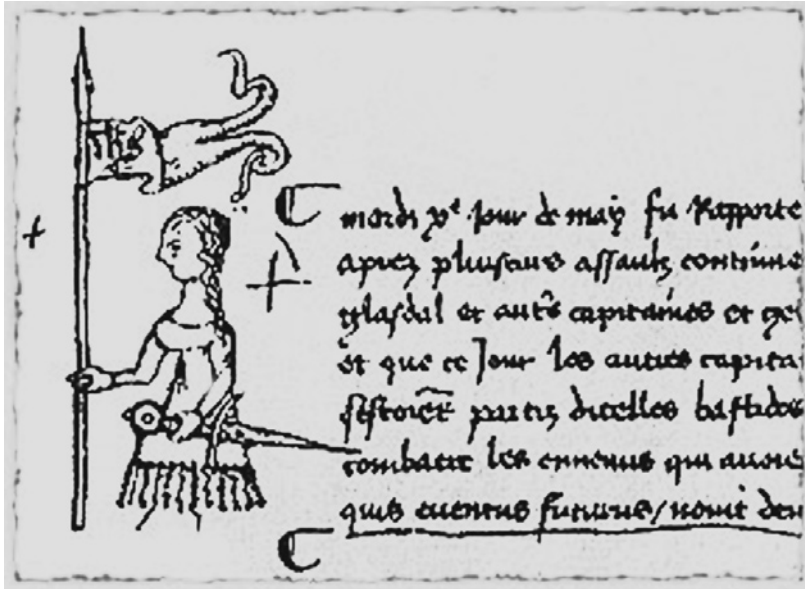 mardi xe Jour de may fu Rapporte
aprez pluseurs assaulz continue
glasdal et autr̃s capitaines et ge
et que ce Jour les autres capita
sestoiẽt partiz dicelles bastides
combatre les ennemis qui avoie
quis eventus futurus / novit deu